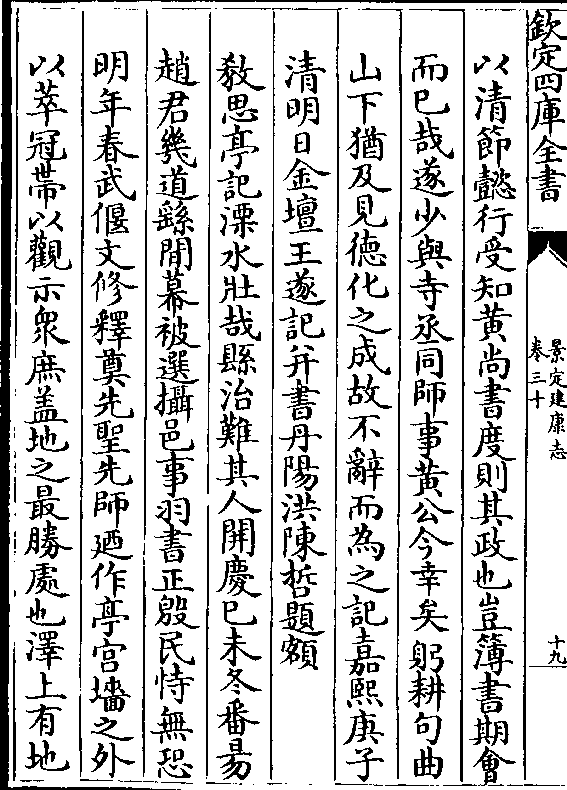 欽定四庫全書
景定建康志
卷三十
十九
以清節懿行受知黄尚書度則其政也豈簿書期會
而已哉遂少與寺丞同師事黄公今幸矣躬耕句曲
山下猶及見徳化之成故不辭而為之記嘉熙庚子
清明日金壇王遂記并書丹陽洪陳哲題額
敎思亭記溧水壯哉縣治難其人開慶巳未冬番昜
趙君幾道繇閫幕被選攝邑事羽書正殷民恃無恐
明年春武偃文修釋奠先聖先師廼作亭宫墻之外
以萃冠帶以觀示衆庶盖地之最勝處也澤上有地